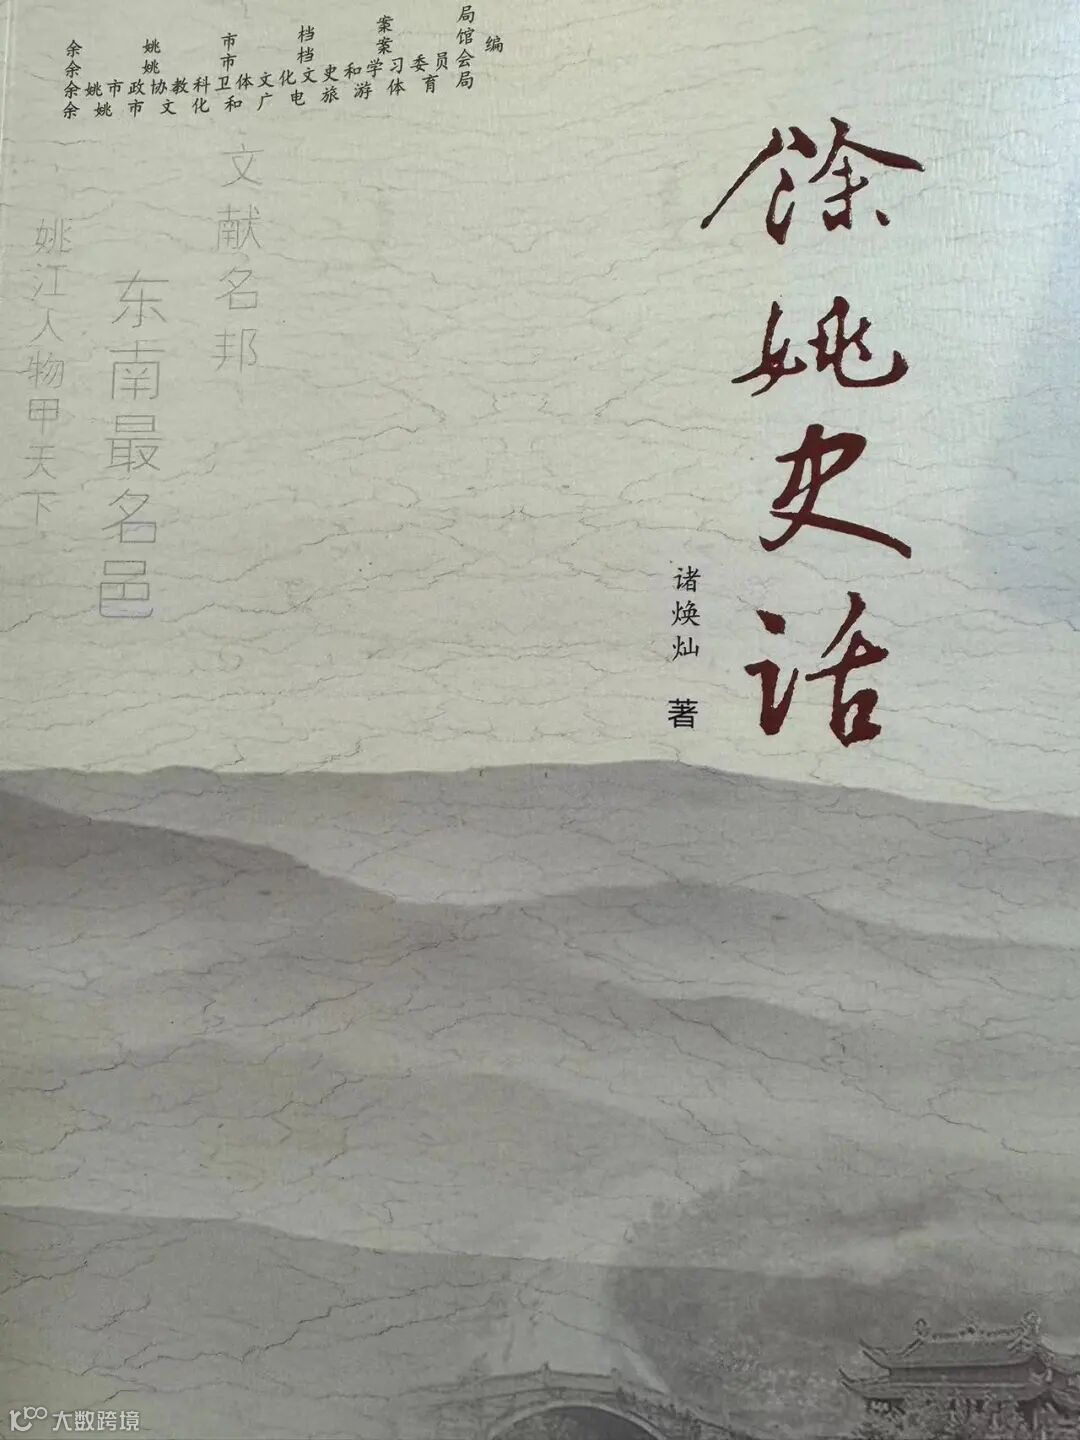 余姚市档案局
余姚市档案馆
余姚市政协教科卫体文化文史和学习委员会
余姚市文化和广电旅游体育局
编
餘姚史话
诸焕灿 著
文献名邦
东南最名邑
姚江人物甲天下
大数跨境